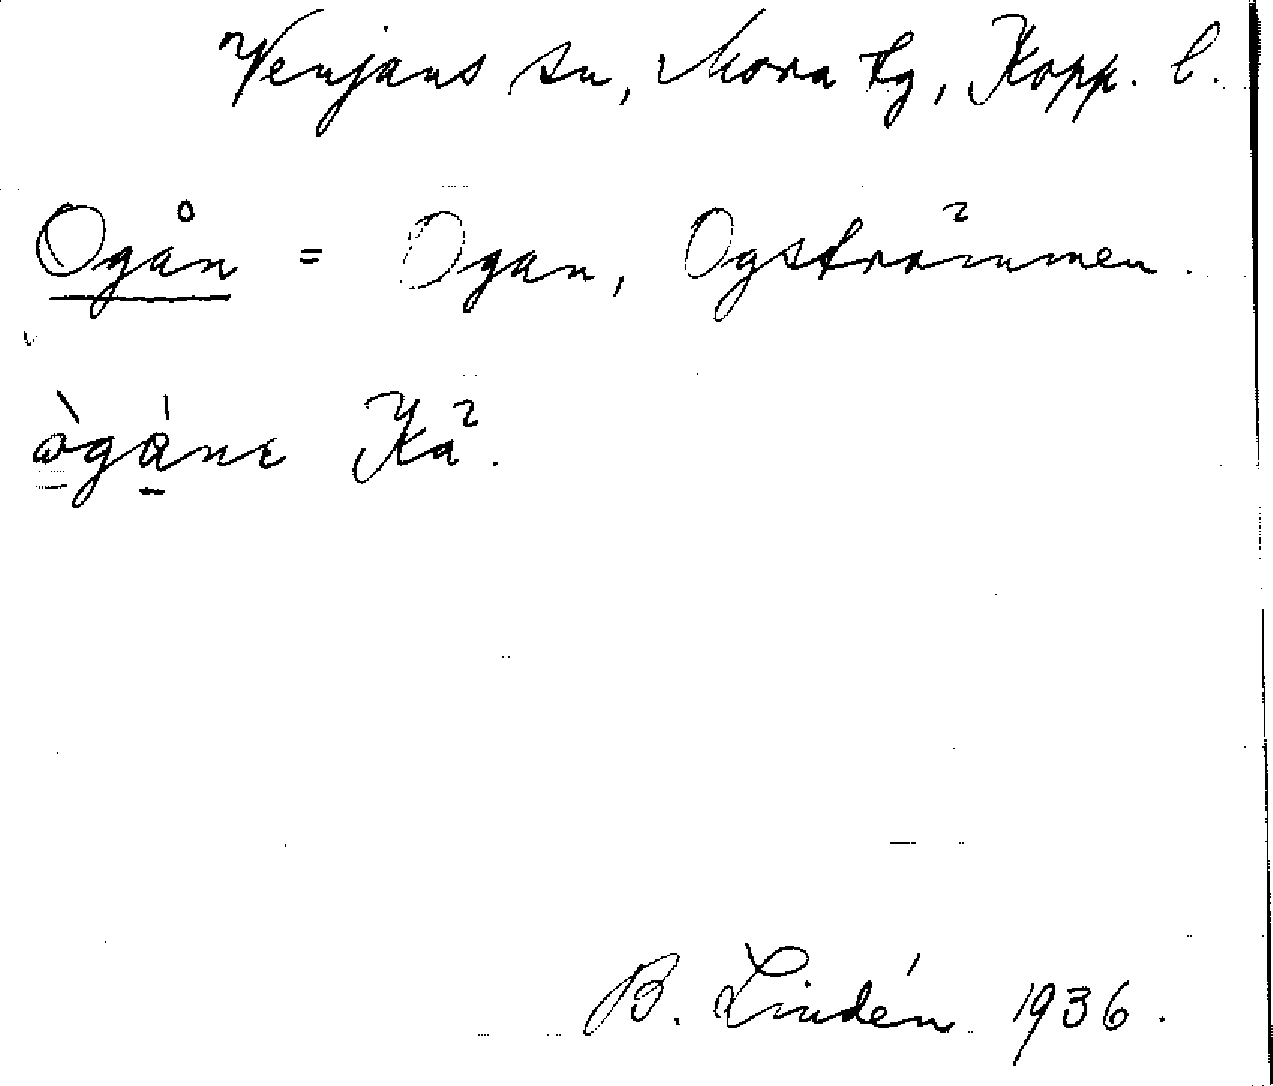 Venjans sn, Mora tg, Kopp. l.
Ogån = Ogan, Ogströmmen.
ògáne Kä.
B. Lindén 1936.